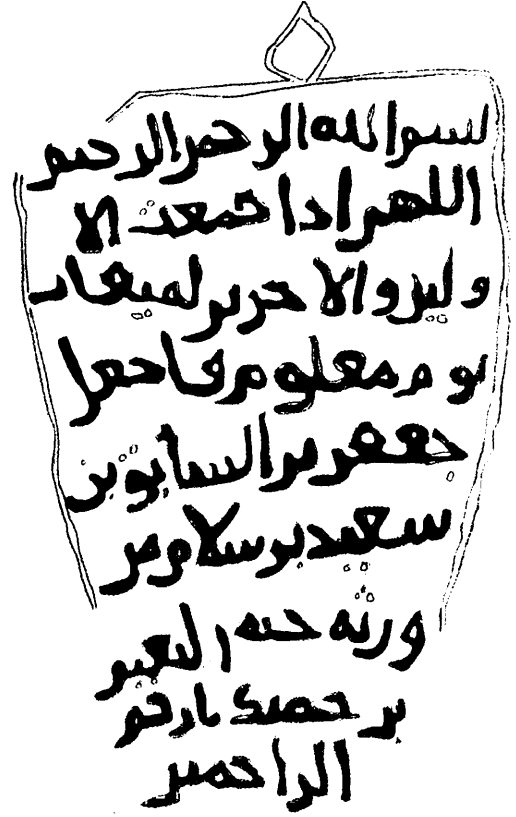 بسم الله الرحمن الرحيم
اللهم اذا جمعت الا
ولين والاخرين لميقات
يوم معلوم فاجعل
جعفر بن السابق بن
سعيد بن سلام من
ورثه جنه النعيم
برحمتك يارحم
الراحمين